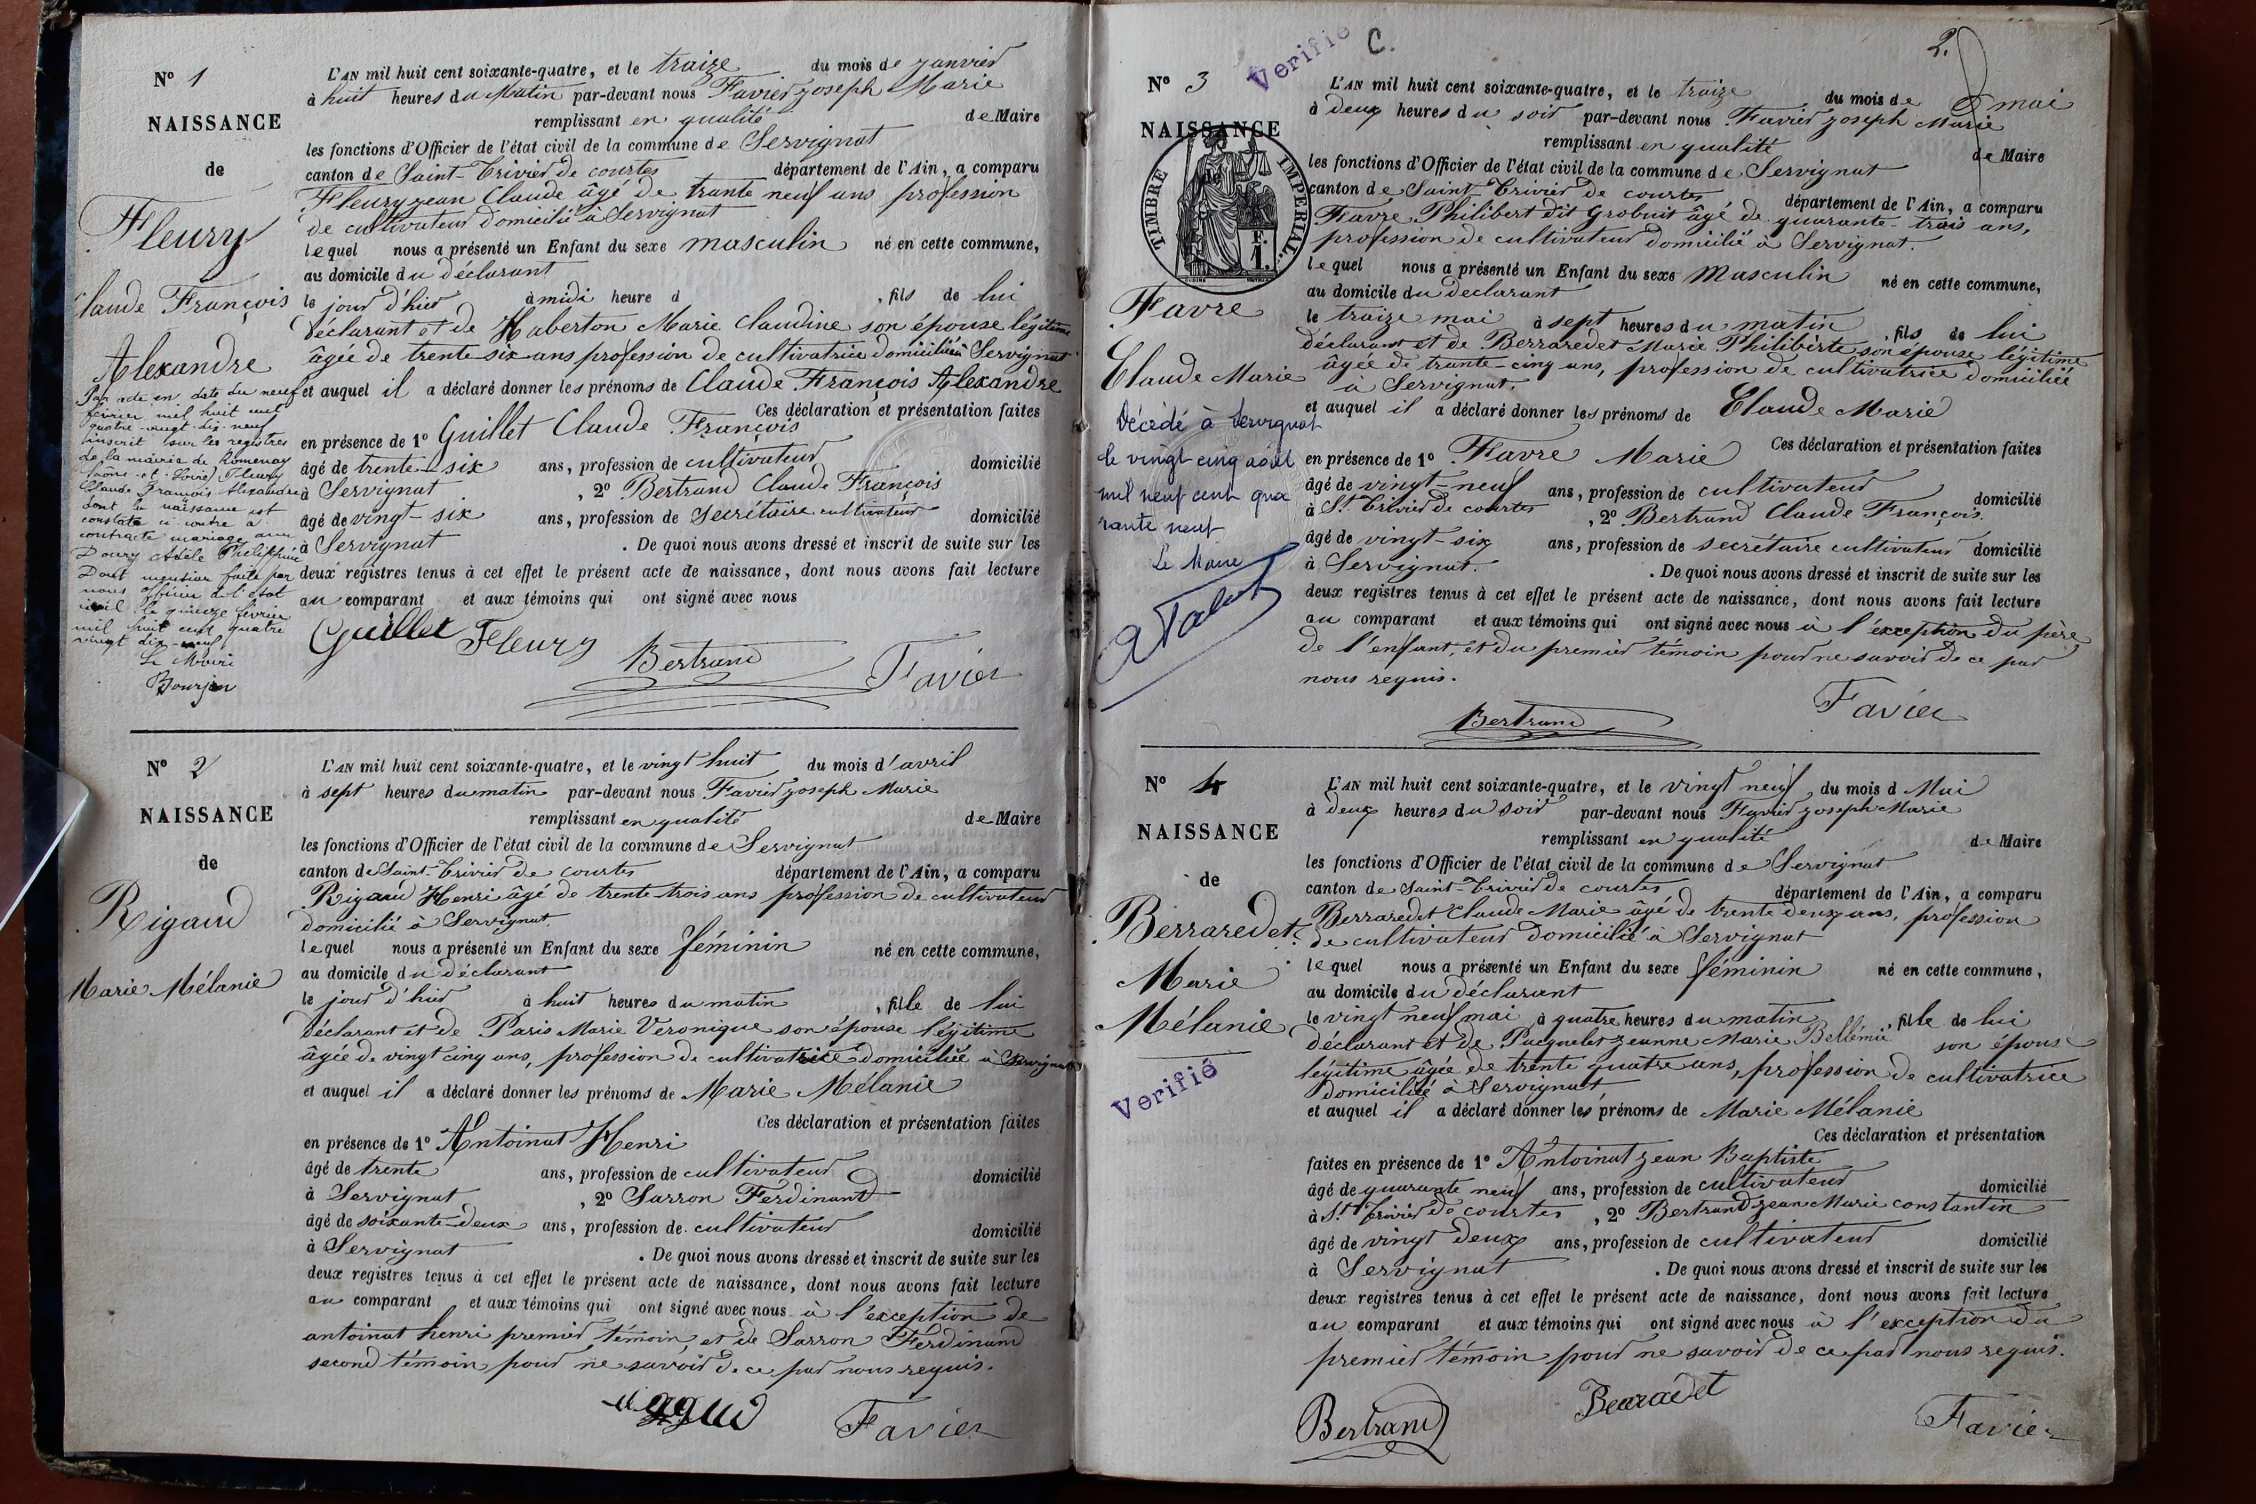 N° 1
NAISSANCE
de
Fleury
Claude François
Alexandre
Par acte en date du neuf
février mil huit cent
quatre-vingt-dix-neuf
inscrit sur les registres
de la mairie de Romenay
(Saône-et-Loire) Fleury
Claude François Alexandre
dont la naissance est
constatée ci-contre a
contracté mariage avec
Doury Adèle
Dont mention faite par
nous officier de l'état
civil le quinze février
mil huit cent quatre
vingt dix-neuf
Le Maire
L'AN mil huit cent soixante-quatre, et le traize du mois de janvier
à huit heures du Matin par-devant nous Favier joseph Marie
remplissant en qualité de Maire
les fonctions d'Officier de l'état civil de la commune de Servignat
canton de Saint-Trivier de courtes département de l'Ain, a comparu
Fleury jean Claude âgé de trante neuf ans profession
de cultivateur domicilié à Servignat
lequel nous a présenté un Enfant du sexe masculin né en cette commune,
au domicile du déclarant
le jour d'hier à midi heure d , fils de lui
déclarant et de Haberton Marie Claudine son épouse légitime
âgée de trente six ans profession de cultivatrice domiciliée à Servignat
et auquel il a déclaré donner les prénoms de Claude François Alexandre
Ces déclaration et présentation faites
en présence de 1° Guillet Claude François
âgé de trente-six ans, profession de cultivateur domicilié
à Servignat , 2° Bertrand Claude François
âgé de vingt-six ans, profession de secrétaire cultivateur domicilié
à Servignat . De quoi nous avons dressé et inscrit de suite sur les
deux registres tenus à cet effet le présent acte de naissance, dont nous avons fait lecture
au comparant et aux témoins qui ont signé avec nous
Guillet Fleury Bertrand Favier
N° 2
NAISSANCE
de
Rigaud
Marie Mélanie
L'AN mil huit cent soixante-quatre, et le vingt huit du mois d'avril
à sept heures du matin par-devant nous Favier joseph Marie
remplissant en qualité de Maire
les fonctions d'Officier de l'état civil de la commune de Servignat
canton de Saint-Trivier de courtes département de l'Ain, a comparu
Rigaud Henri âgé de trente-trois ans profession de cultivateur
domicilié à Servignat
lequel nous a présenté un Enfant du sexe féminin né en cette commune,
au domicile du déclarant
le jour d'hier à huit heures du matin , fille de lui
déclarant et de Paris Marie Veronique son épouse légitime
âgée de vingt cinq ans, profession de cultivatrice domiciliée à Servignat
et auquel il a déclaré donner les prénoms de Marie Mélanie
Ces déclaration et présentation faites
en présence de 1° Antoinat Henri
âgé de trente ans, profession de cultivateur domicilié
à Servignat , 2° Sarron Ferdinand
âgé de soixante-deux ans, profession de cultivateur domicilié
à Servignat . De quoi nous avons dressé et inscrit de suite sur les
deux registres tenus à cet effet le présent acte de naissance, dont nous avons fait lecture
au comparant et aux témoins qui ont signé avec nous à l'exception de
antoinat henri premier témoin, et de Sarron Ferdinand
second témoin pour ne savoir de ce par nous requis.
Favier
2.
Verifié
C.
N° 3
NAISSANCE
de
TIMBRE IMPERIAL.
F.
1.
Favre
Claude Marie
Décédé à Servignat
le vingt cinq août
mil neuf cent qua
rante neuf
Le Maire
L'AN mil huit cent soixante-quatre, et le traize du mois de mai
à deux heures du soir par-devant nous Favier joseph Marie
remplissant en qualité de Maire
les fonctions d'Officier de l'état civil de la commune de Servignat
canton de Saint-Trivier de courtes département de l'Ain, a comparu
Favre Philibert dit Grobuit âgé de quarante-trois ans,
profession de cultivateur domicilié à Servignat.
lequel nous a présenté un Enfant du sexe Masculin né en cette commune,
au domicile du declarant
le traize mai à sept heures du matin , fils de lui
déclarant et de Berraredet Marie Philiberte son épouse légitime
âgée de trante-cinq ans, profession de cultivatrice domiciliée
à Servignat.
et auquel il a déclaré donner les prénoms de Claude Marie
Ces déclaration et présentation faites
en présence de 1° Favre Marie
âgé de vingt-neuf ans, profession de cultivateur domicilié
à St. Trivier de courtes , 2° Bertrand Claude François.
âgé de vingt-six ans, profession de secrétaire cultivateur domicilié
à Servignat. . De quoi nous avons dressé et inscrit de suite sur les
deux registres tenus à cet effet le présent acte de naissance, dont nous avons fait lecture
au comparant et aux témoins qui ont signé avec nous à l'exception du père
de l'enfant, et du premier témoin pour ne savoir de ce par
nous requis.
Bertrand Favier
N° 4
NAISSANCE
de
Berraredet
Marie
Mélanie
Verifié
L'AN mil huit cent soixante-quatre, et le vingt neuf du mois d Mai
à deux heures du soir par-devant nous Favier joseph Marie
remplissant en qualité de Maire
les fonctions d'Officier de l'état civil de la commune de Servignat
canton de Saint-Trivier de courtes département de l'Ain, a comparu
Berraredet Claude Marie âgé de trente deux ans, profession
de cultivateur domicilié à Servignat
lequel nous a présenté un Enfant du sexe féminin né en cette commune,
au domicile du déclarant
le vingt neuf mai à quatre heures du matin , fille de lui
déclarant et de Pacquelet jeanne Marie Bellémie son épouse
légitime âgée de trente quatre ans, profession de cultivatrice
domiciliée à Servignat
et auquel il a déclaré donner les prénoms de Marie Mélanie
Ces déclaration et présentation
faites en présence de 1° Antoinat jean Baptiste
âgé de quarante neuf ans, profession de cultivateur domicilié
à St. Trivier de courtes , 2° Bertrand jean Marie constantin
âgé de vingt deux ans, profession de cultivateur domicilié
à Servignat . De quoi nous avons dressé et inscrit de suite sur les
deux registres tenus à cet effet le présent acte de naissance, dont nous avons fait lecture
au comparant et aux témoins qui ont signé avec nous à l'exception du
premier témoin pour ne savoir de ce par nous requis.
Bertrand Favier